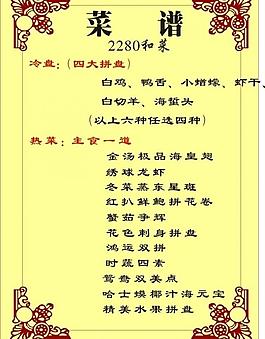 菜 谱
2280和菜
冷盘:(四大拼盘)
白鸡、鸭舌、小螃蟹、虾干、
白切羊、海蜇头
(以上六种任选四种)
热菜:主食一道
金汤极品海皇翅
绣球龙虾
冬菜蒸东星斑
红扒鲜鲍拼花卷
蟹茄争辉
花色刺身拼盘
鸿运双拼
时蔬四素
鸳鸯双美点
哈士蟆椰汁海元宝
精美水果拼盘